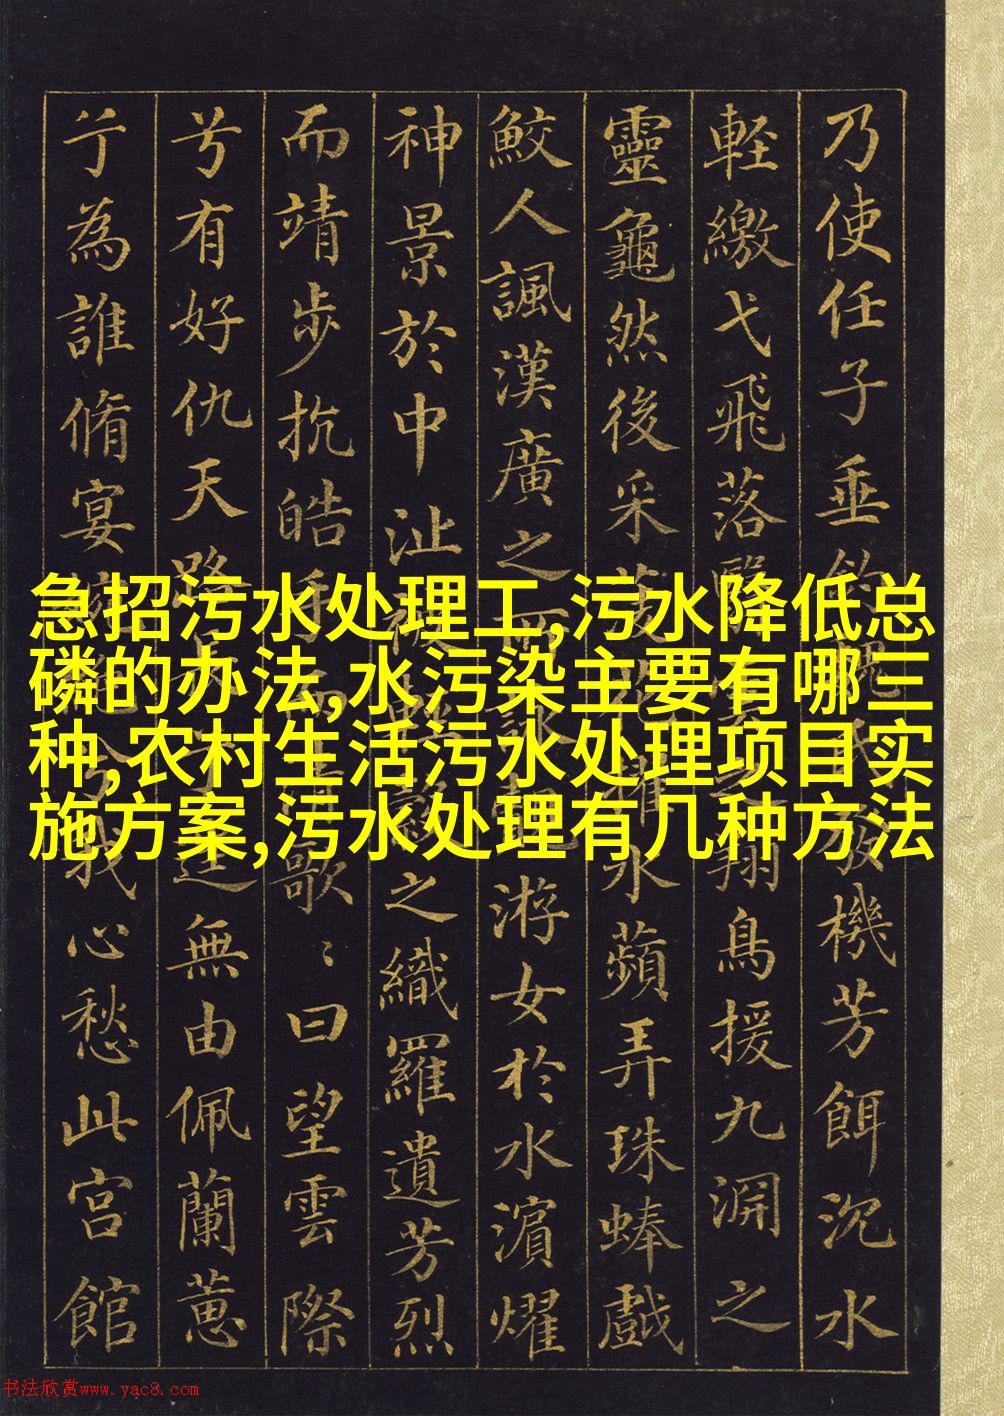 乃使任子垂機芳餌沉水
軽繳弋飛落翔鳥援九淵之
靈龜然後采水蘋弄珠蜯戲
鮫人諷漢廣之游女於水濱燿
神景於中沚之織羅遺芳烈
而靖步抗皓手歌〻曰望雲際
兮有好仇天路無由佩蘭蕙
兮為誰脩宴我心愁此宮館
急招污水处理工,污水降低总
磷的办法,水污染主要有哪三
种,农村生活污水处理项目实
施方案,污水处理有几种方法
书法欣赏www.yac8.com